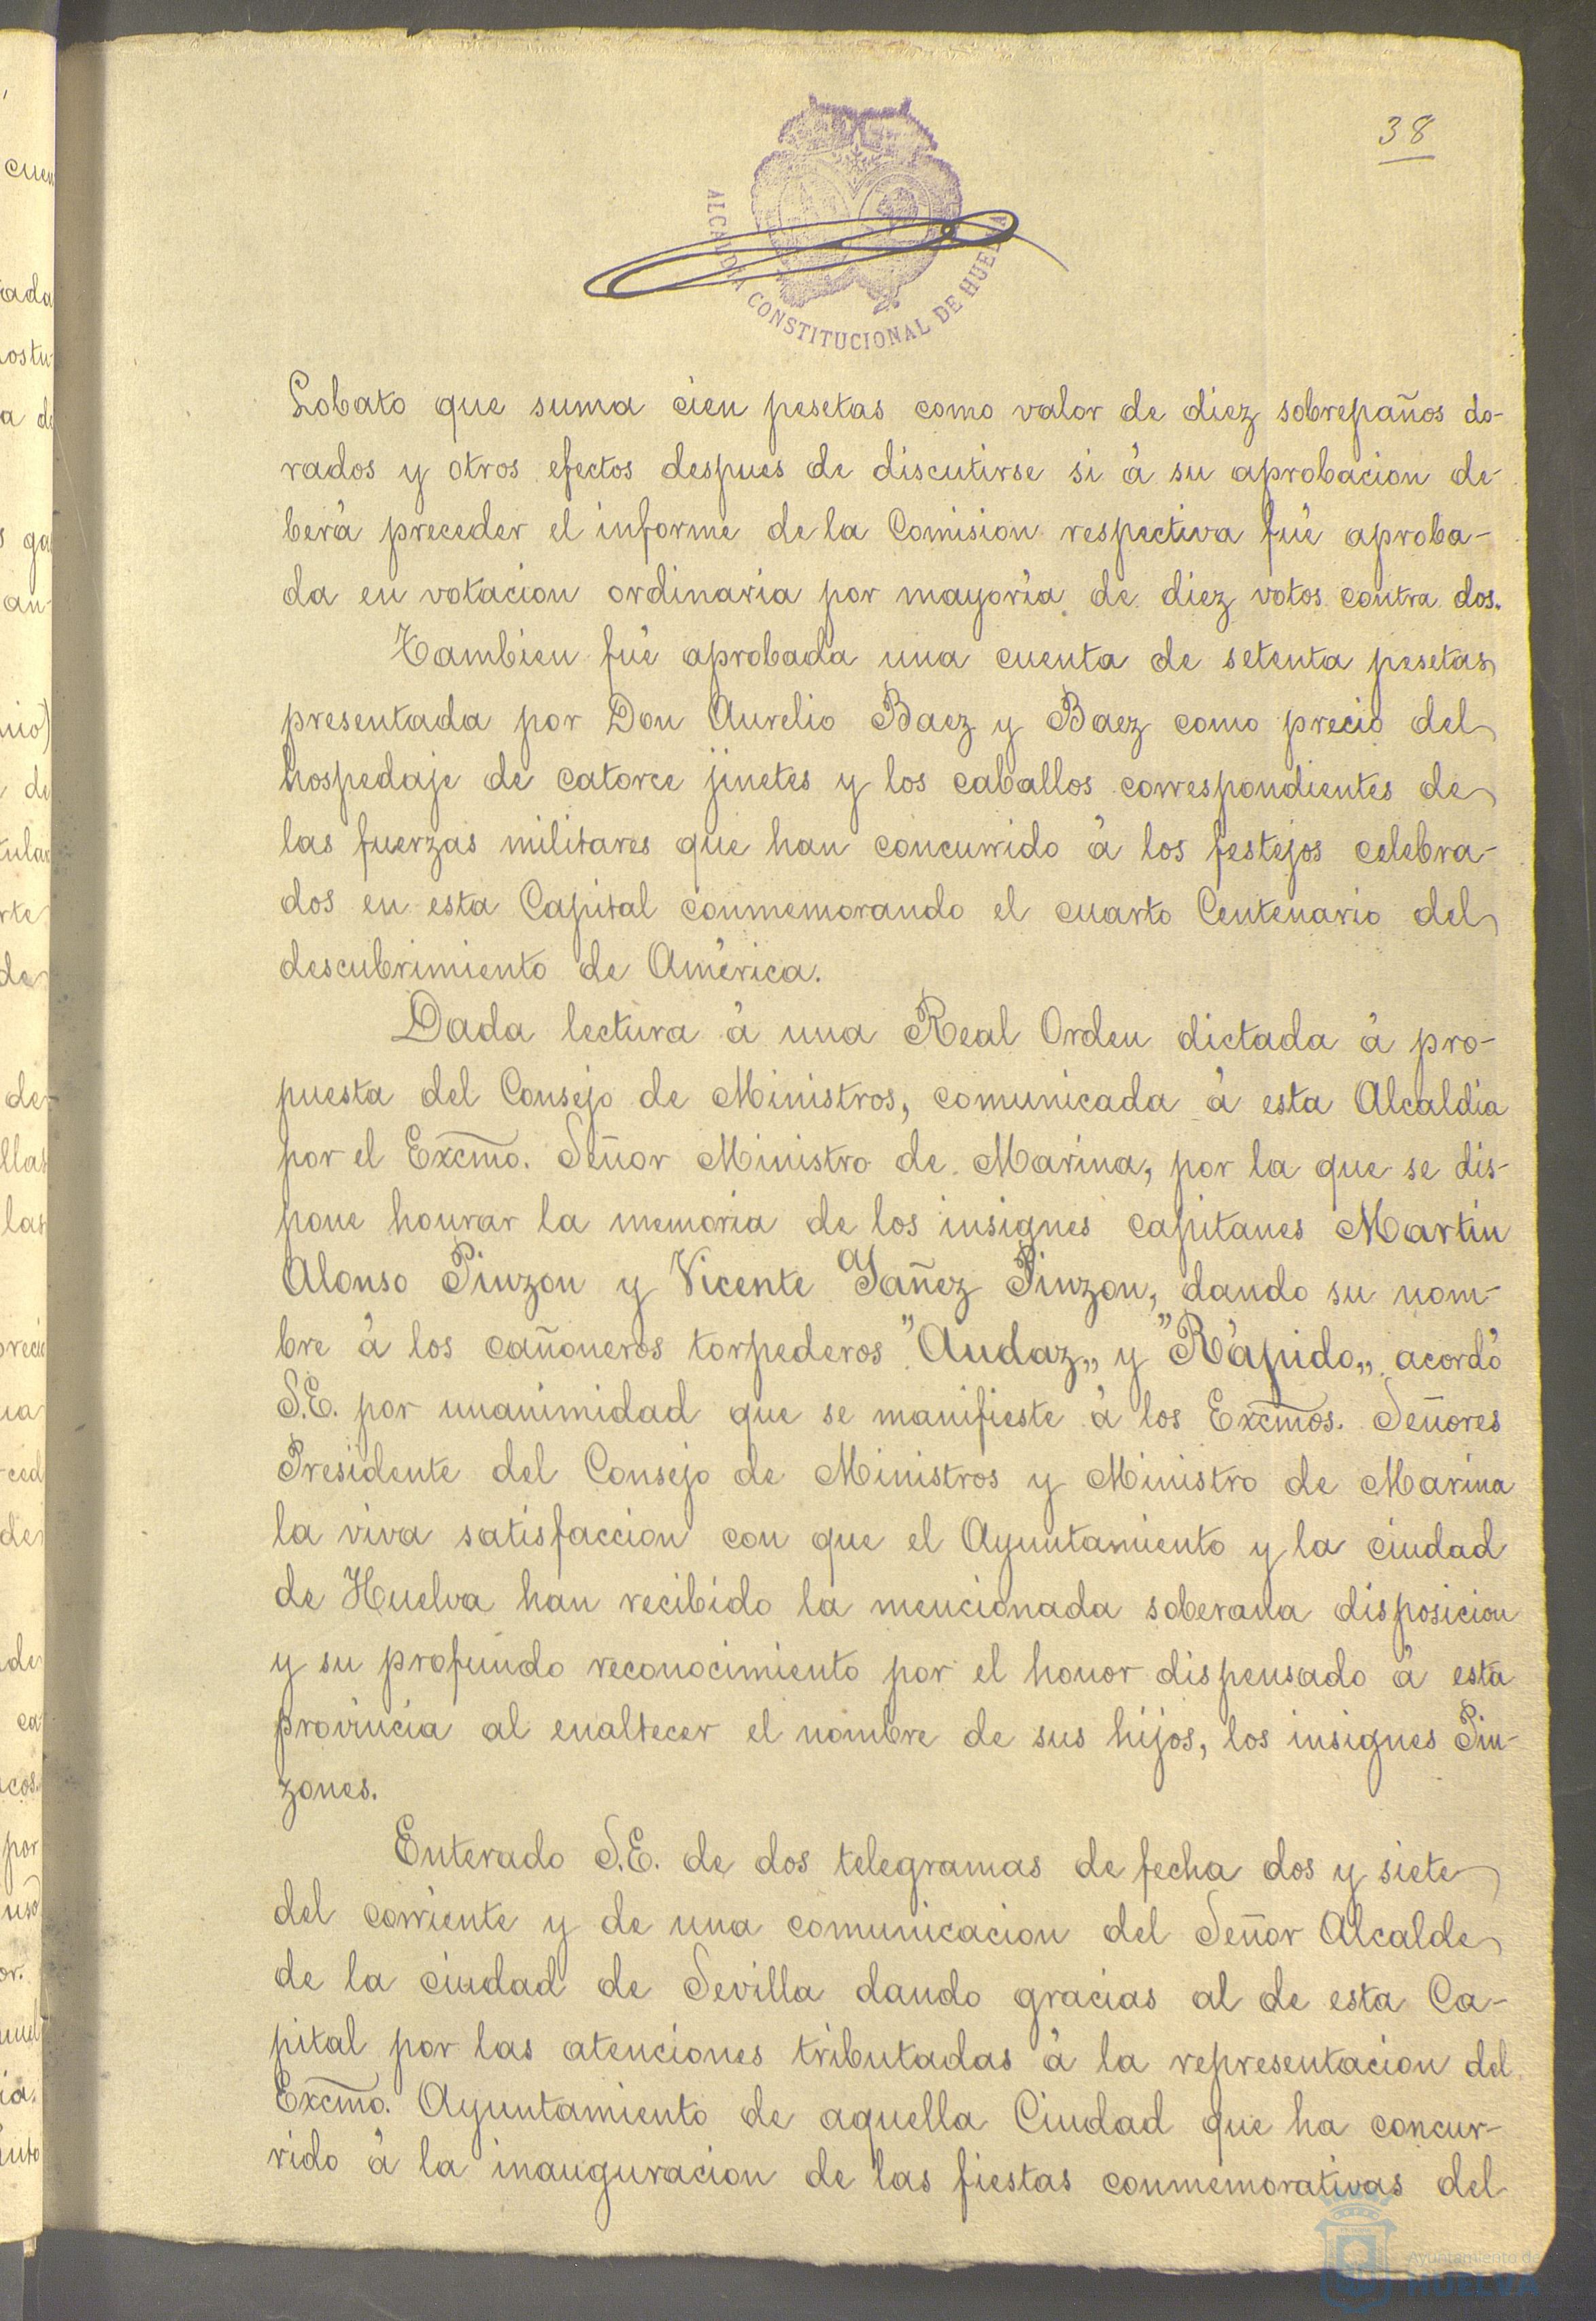 38
ALCALDIA CONSTITUCIONAL DE HUELVA
Lobato que suma cien pesetas como valor de diez sobrepaños do-
rados y otros efectos despues de discutirse si á su aprobacion de-
berá preceder el informe de la Comision respectiva fué aproba-
da en votacion ordinaria por mayoría de diez votos contra dos.
Tambien fué aprobada una cuenta de setenta pesetas
presentada por Don Aurelio Baez y Baez como precio del
hospedaje de catorce jinetes y los caballos correspondientes de
las fuerzas militares que han concurrido á los festejos celebra-
dos en esta Capital conmemorando el cuarto Centenario del
descubrimiento de América.
Dada lectura á una Real Orden dictada á pro-
puesta del Consejo de Ministros, comunicada á esta Alcaldía
por el Excmo. Señor Ministro de Marina, por la que se dis-
pone honrar la memoria de los insignes capitanes Martín
Alonso Pinzon y Vicente Yañez Pinzon, dando su nom-
bre á los cañoneros torpederos "Audaz„ y "Rápido„ acordó
S.E. por unanimidad que se manifieste á los Excmos. Señores
Presidente del Consejo de Ministros y Ministro de Marina
la viva satisfaccion con que el Ayuntamiento y la ciudad
de Huelva han recibido la mencionada soberana disposicion
y su profundo reconocimiento por el honor dispensado á esta
provincia al enaltecer el nombre de sus hijos, los insignes Pin-
zones.
Enterado S.E. de dos telegramas de fecha dos y siete
del corriente y de una comunicacion del Señor Alcalde
de la ciudad de Sevilla dando gracias al de esta Ca-
pital por las atenciones tributadas á la representacion del
Excmo. Ayuntamiento de aquella Ciudad que ha concur-
rido á la inauguracion de las fiestas conmemorativas del
Ayuntamiento de
HUELVA